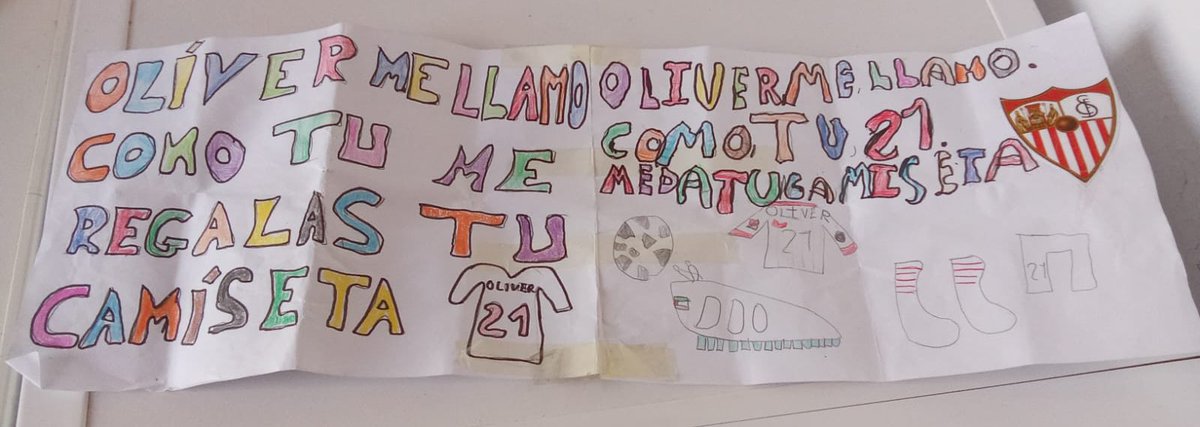 OLÍVER ME LLAMO
COMO TU ME
REGALAS TU
CAMÍSETA
OLIVER
21
OLIVER ME, LLAMO.
COMO, TU, 21.
ME DA TU CAMISETA
OLIVER
21
21